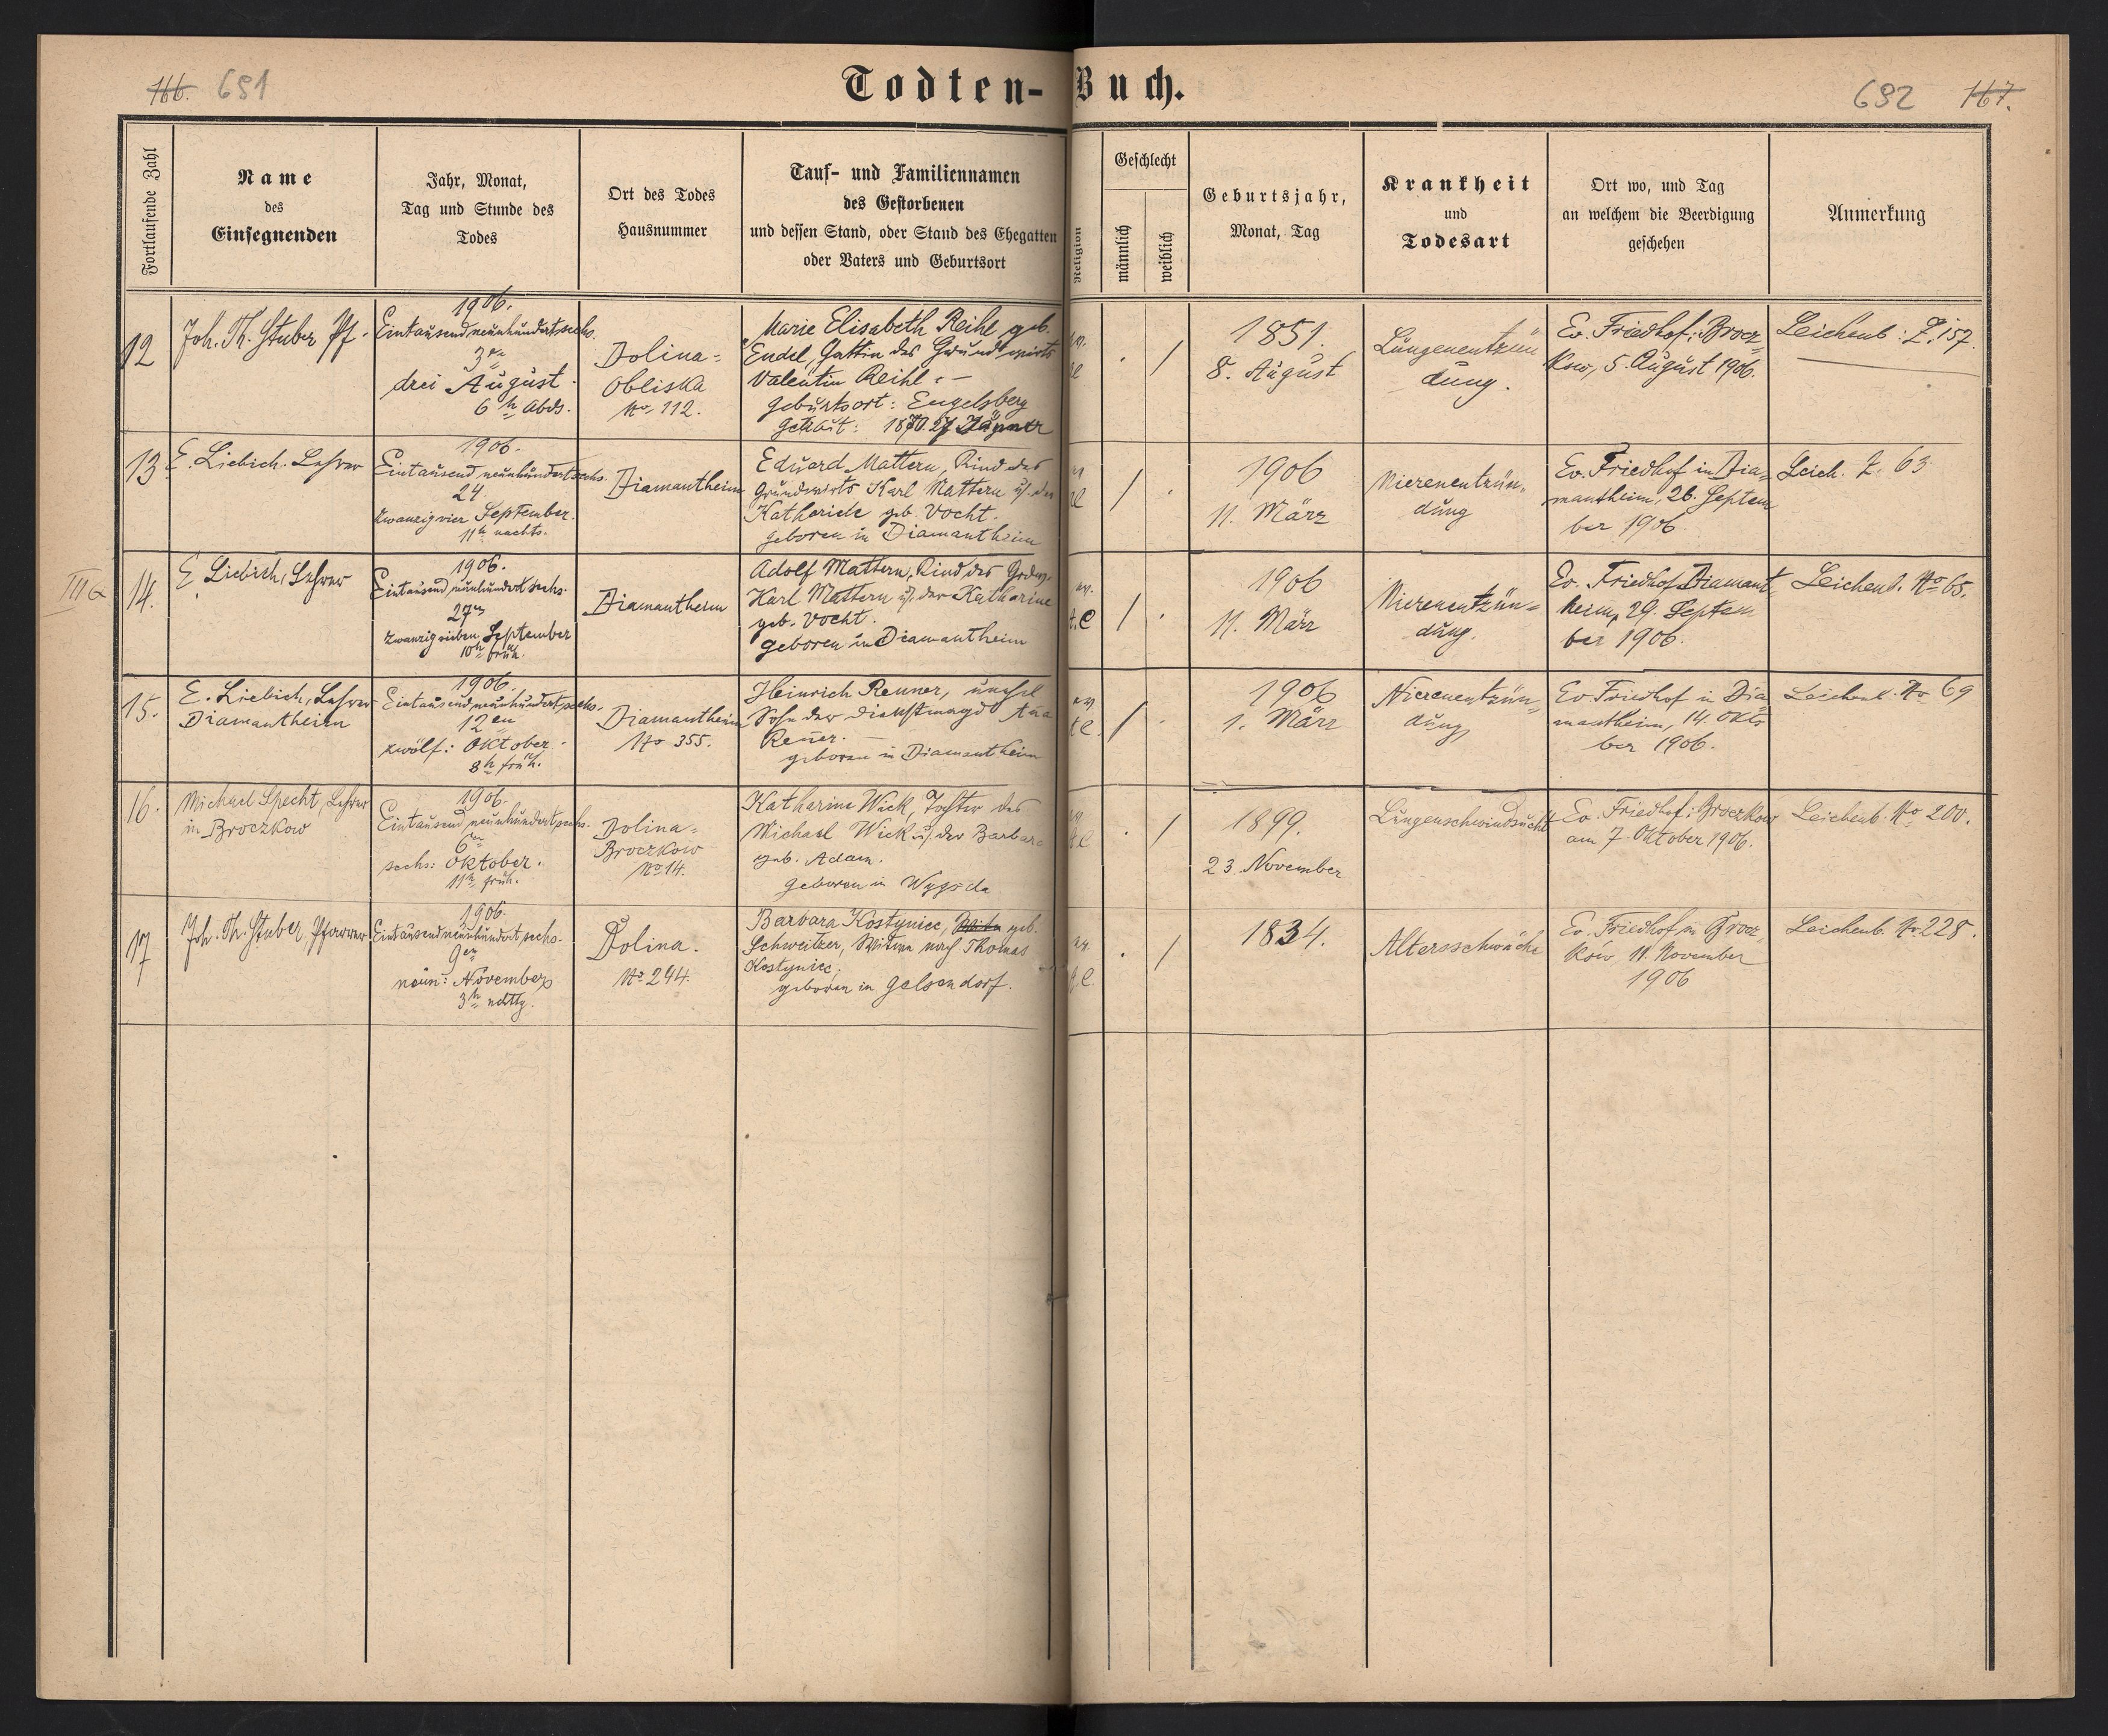 166. 691
Todten-Buch.
692 167.
Fortlaufende Zahl
Name
des
Einsegnenden
Jahr, Monat,
Tag und Stunde des
Todes
Ort des Todes
Hausnummer
Tauf- und Familiennamen
des Gestorbenen
und dessen Stand, oder Stand des Ehegatten
oder Vaters und Geburtsort
Religion
Geschlecht
männlich
weiblich
Geburtsjahr,
Monat, Tag
Krankheit
und
Todesart
Ort wo, und Tag
an welchem die Beerdigung
geschehen
Anmerkung
12
Joh. Th. Stuber Pf.
1906.
Eintausendneunhundertsechs.
3en
drei August.
6 h Abds.
Dolina-
Obliska
No 112.
Marie Elisabeth Reihl geb.
Endel, Gattin des Grundwirts
Valentin Reihl. -
Geburtsort: Engelsberg
1851.
8. August
Lungenentzün
dung.
Ev. Friedhof: Brocz-
kow, 5. August 1906.
Leichenb: Z. 157.
13.
E. Liebich. Lehrer
1906.
Eintausend neunhundertsechs.
24
zwanzigvier September.
11 h nachts.
Diamantheim
Eduard Mattern, Kind des
Grundwirts Karl Mattern u. der
Katharine geb. Vocht.
geboren in Diamantheim
1906
11. März
Nierenentzün-
dung
Ev. Friedhof in Dia-
mantheim, 26. Septem
ber 1906.
Leich. Z. 63.
III a
14.
E. Liebich, Lehrer
1906.
Eintausend neunhundert sechs.
27en
zwanzigsieben September
10 h früh.
Diamantheim
Adolf Mattern, Kind des
Karl Mattern u. der Katharine
geb. Vocht.
geboren in Diamantheim
ev.
1906
11. März
Nierenentzün-
dung.
Ev. Friedhof Diamant-
heim, 29. Septem
ber 1906.
Leichenb. No 65.
15.
E. Liebich, Lehrer
Diamantheim
1906.
Eintausend neunhundert sechs.
12en
zwölf: Oktober.
8 h früh.
Diamantheim
No 355.
Heinrich Renner, unehel
Sohn der Dienstmagd
geboren in Diamantheim
1906
1. März
Nierenentzün-
dung
Ev. Friedhof in Dia
mantheim, 14. Okto
ber 1906.
Leichenb. No 69
16.
Michael Specht, Lehrer
in Broczkow
1906.
Eintausend neunhundert sechs.
6en
sechs: Oktober.
11 h früh.
Dolina-
Broczkow
No 14.
Katharine Wick, Tochter des
Michael Wick u. der Barbara
geb. Adam.
geboren in Wygoda
1899.
23. November
Lungenschwindsucht
Ev. Friedhof: Broczkow
am 7. Oktober 1906.
Leichenb. No 200.
17
Joh. Th. Stuber, Pfarrer
1906.
Eintausendneunhundert sechs.
9en
neun: November
3 h nchttg.
Dolina.
No 294.
Barbara Kostyniec, geb.
Schweitzer, Witwe nach Thomas
Kostyniec,
geboren in Gelsendorf.
1834.
Altersschwäche
Ev. Friedhof in Brocz-
ków, 11. November
1906
Leichenb. No 228.